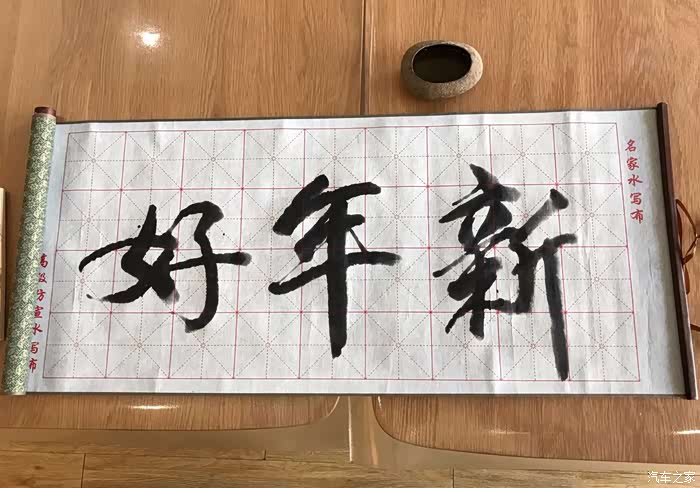 新年好
名家水写布
高级方宣水写布
汽车之家